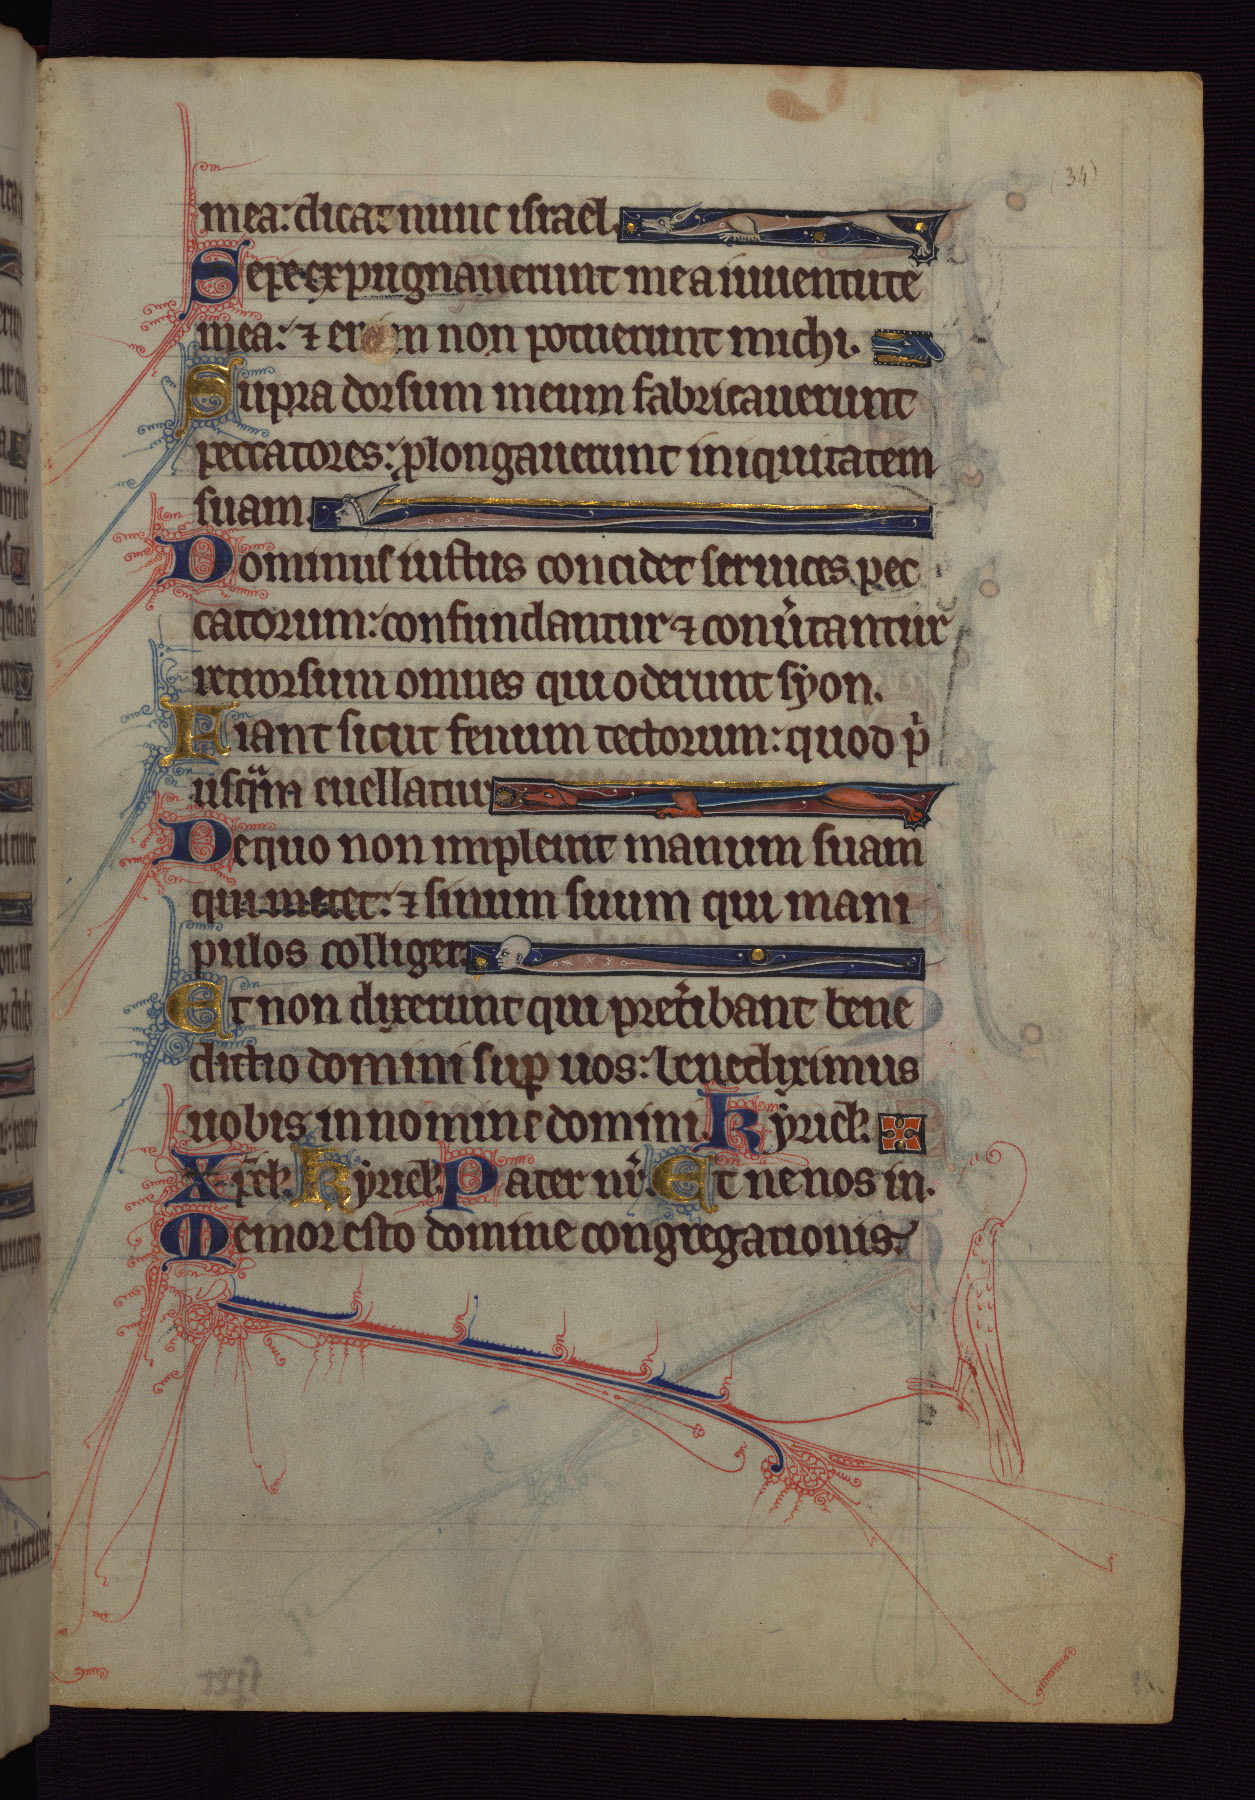 (34)
mea: dicat nunc israel.
Sepe expugnauerunt mea iuuentute
mea: ⁊ enim non potuerunt michi.
Supra dorsum meum fabricauerunt
peccatores: plongauerunt iniquitatem
suam.
Dominus iustus concidet seruices pec
catorum: confundantur ⁊ conu͛tantur
retrorsum omnes qui oderunt syon.
Fiant sicut fenum tectorum: quod p͛
usqᷓm euellatur
De quo non impleuit manum suam
qui metet: ⁊ sinum suum qui mani
pulos colliget.
Et non dixerunt qui pret͛ibant bene
dictio domini sup̱ uos: benediximus
uobis in nomine domini. Kyriel̄.
Xp̄el̄. Kyriel̄. Pater nr̄. Et ne nos in.
Memor esto domine congregationis.